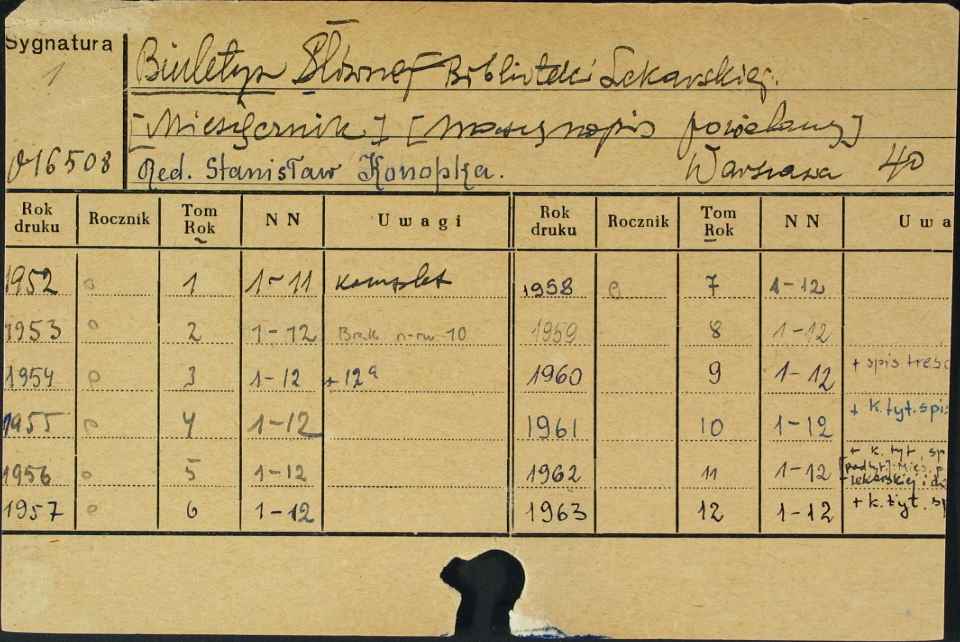 Sygnatura
1
Biuletyn Głównej Biblioteki Lekarskiej.
[Miesięcznik] [Maszynopis powielany]
16508 Red. Stanisław Konopka. Warszawa 4°
Rok druku Rocznik Tom Rok NN Uwagi Rok druku Rocznik Tom Rok NN Uwa
1952 o 1 1-11 komplet 1958 o 7 1-12
1953 o 2 1-12 Brak n-ru 10 1959 8 1-12
1954 o 3 1-12 +12a 1960 9 1-12 + spis treśc
1955 o 4 1-12 1961 10 1-12 + k.tyt.spis
1956 o 5 1-12 1962 11 1-12 + k. tyt. sp
lekarskiej i
1957 o 6 1-12 1963 12 1-12 + k.tyt. sp